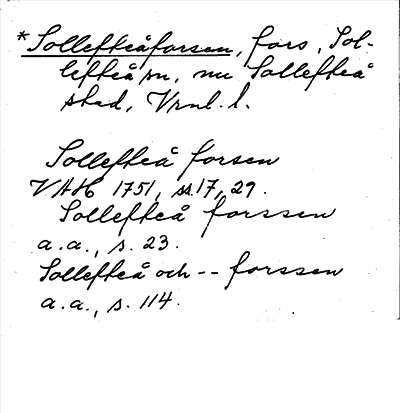 *Sollefteåforsen, fors, Sol-
lefteå sn, nu Sollefteå
stad, Vrnl. l.
Sollefteå forsen
VAH 1751, ss. 17, 29.
Sollefteå forssen
a.a., s. 23.
Sollefteå och -- forssen
a.a., s. 114.